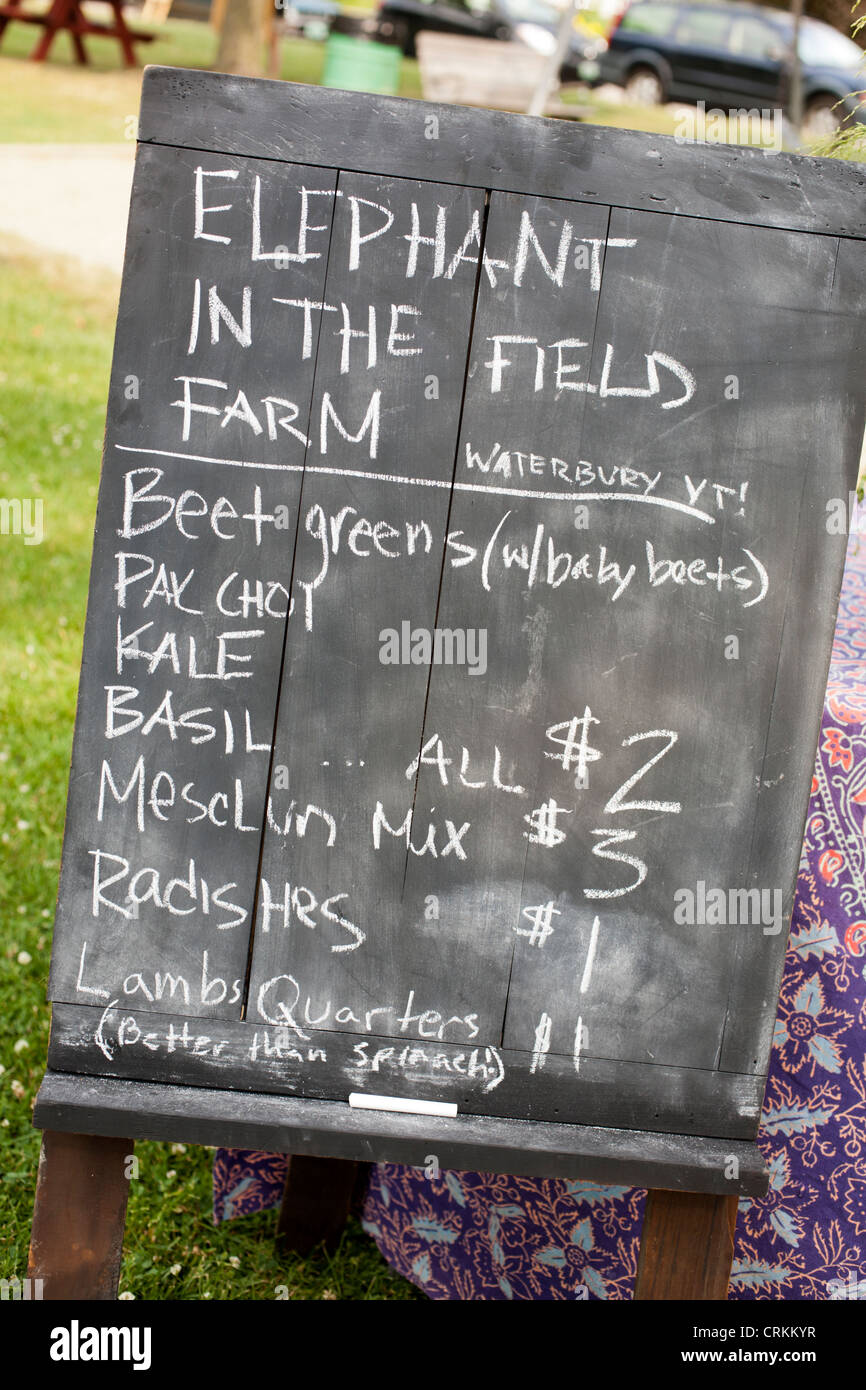 ELEPHANT
IN THE FIELD
FARM WATERBURY VT!
Beet greens (w/baby beets)
PAK CHOY
KALE
BASIL ... ALL $2
MesCLun Mix $3
RadisHes $1
Lambs Quarters $1
(Better than spinach!)
alamy
Image ID: CRKKYR
www.alamy.com